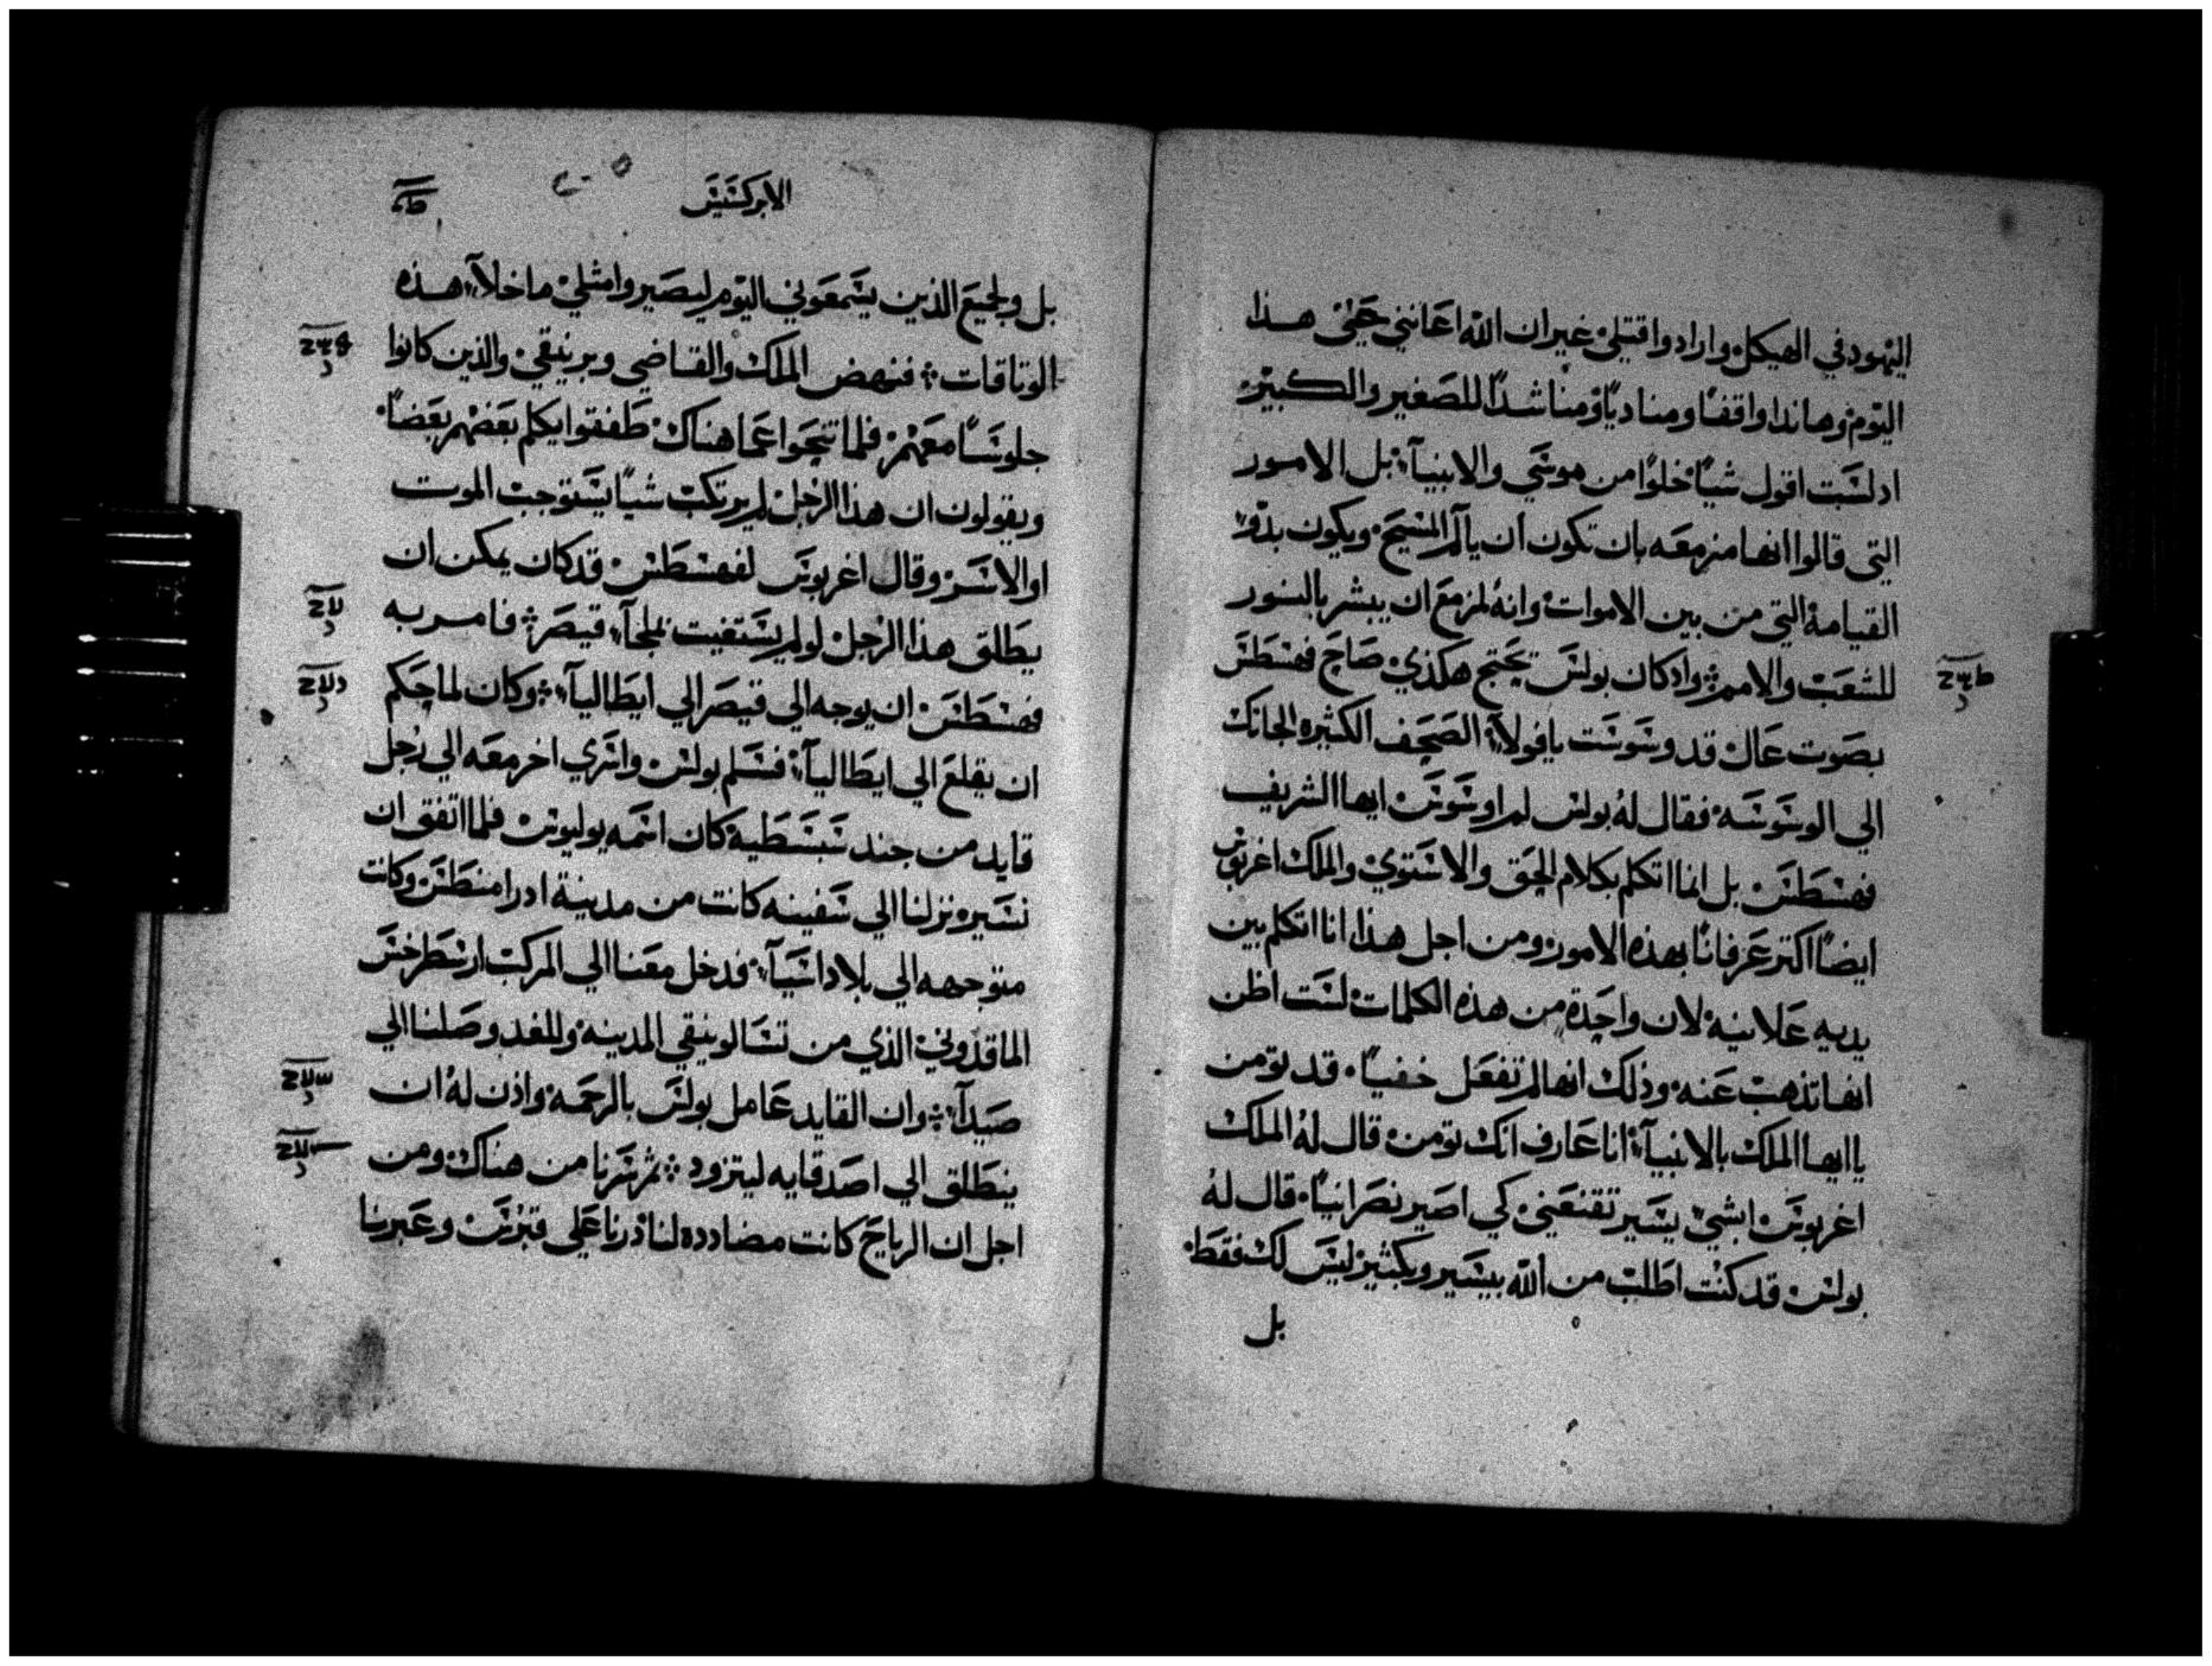 اليهود في الهيكل وارادوا قتلي غير ان الله اعانني حتي هذا
اليوم وهانذا واقفًا ومناديًا ومناشدًا للصغير والكبير
اد لست اقول شيًا خلوًا من موسي والانبيآء بل الامور
التي قالوا انها مزمعه بان تكون ان يالم المسيح ويكون بدو
القيامة التي من بين الاموات وانهُ لمزمع ان يبشر بالنور
للشعب والامم واد كان بولس يحتج هكذي صاح فهسطس
بصوت عال قد وسوست يا فولا الصحف الكثيره الجاتك
الي الوسوسه فقال لهُ بولس لم اوسوس ايها الشريف
فهسطس بل انما اتكلم بكلام الحق والاستوي والملك اغربوس
ايضًا اكتر عرفانًا بهذه الامور ومن اجل هذا انا اتكلم بين
يديه علانيه لان واحدة من هذه الكلمات لست اظن
انها تذهب عنه وذلك انها لم تفعل خفيًا قد تومن
يا ايها الملك بالانبيآء انا عارف انك تومن قال لهُ الملك
اغربوس ابشي يسير تقنعني كي اصير نصرانيًا قال لهُ
بولس قد كنت اطلب من الله بيسير وبكثير ليس لك فقط
بل
الابركسيس
بل ولجميع الذين يسمعوني اليوم ليصيروا مثلي ما خلا هذه
الوتاقات فنهض الملك والقاضي وبرنيقي والذين كانوا
جلوسًا معهم فلما تنحوا عما هناك طفقوا يكلم بعضهم بعضًا
ويقولون ان هذا الرجل لم يرتكب شيًا يستوجب الموت
او الاسر وقال اغربوس لفهسطس قد كان يمكن ان
يطلق هذا الرجل لو لم يستغيت بملجآء قيصر فامر به
فهسطس ان يوجه الي قيصر الي ايطاليآ وكان لما حكم
ان يقلع الي ايطاليآ فسلم بولس واسري اخر معه الي رجل
قايد من جند سبسطية كان اسمه يوليوس فلما اتفق ان
نسير نزلنا الي سفينه كانت من مدينة ادرامنطس وكانت
متوجهه الي بلاد اسيآ فدخل معنا الي المركب ارسطرخس
الماقدوني الذي من تسالونيقي المدينه وللغد وصلنا الي
صيدآ وان القايد عامل بولس بالرحمه واذن لهُ ان
ينطلق الي اصدقايه ليتزود ثم سرنا من هناك ومن
اجل ان الرياح كانت مضادده لنا درنا علي قبرس وعبرنا